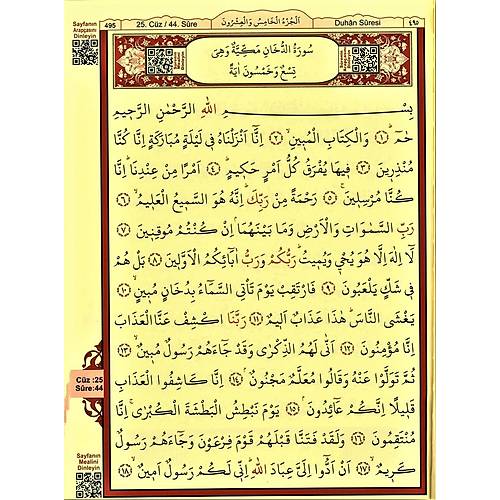 Sayfanın
Arapçasını
Dinleyin
495
25. Cüz / 44. Sûre
اَلْجُزْءُ الْخَامِسُ وَالْعِشْرُونَ
Duhân Sûresi
٤٩٥
سُورَةُ الدُّخَانِ مَكِّيَّةٌ وَهِيَ
تِسْعٌ وَخَمْسُونَ اٰيَةً
بِسْــــــمِ اللّٰهِ الرَّحْمٰنِ الرَّحٖيمِ
حٰمٓ ۚ ﴿١﴾ وَالْكِتَابِ الْمُبٖينِ ۙ ﴿٢﴾ اِنَّٓا اَنْزَلْنَاهُ فٖي لَيْلَةٍ مُبَارَكَةٍ اِنَّا كُنَّا
مُنْذِرٖينَ ﴿٣﴾ فٖيهَا يُفْرَقُ كُلُّ اَمْرٍ حَكٖيمٍ ۙ ﴿٤﴾ اَمْرًا مِنْ عِنْدِنَا ؕ اِنَّا
كُنَّا مُرْسِلٖينَ ۚ ﴿٥﴾ رَحْمَةً مِنْ رَبِّكَ ؕ اِنَّهُ هُوَ السَّمٖيعُ الْعَلٖيمُ ۙ ﴿٦﴾
رَبِّ السَّمٰوَاتِ وَالْاَرْضِ وَمَا بَيْنَهُمَا ۢ اِنْ كُنْتُمْ مُوقِنٖينَ ﴿٧﴾
لَٓا اِلٰهَ اِلَّا هُوَ يُحْيٖ وَيُمٖيتُ ؕ رَبُّكُمْ وَرَبُّ اٰبَٓائِكُمُ الْاَوَّلٖينَ ﴿٨﴾ بَلْ هُمْ
فٖي شَكٍّ يَلْعَبُونَ ﴿٩﴾ فَارْتَقِبْ يَوْمَ تَأْتِي السَّمَٓاءُ بِدُخَانٍ مُبٖينٍ ۙ ﴿١٠﴾
يَغْشَى النَّاسَ ؕ هٰذَا عَذَابٌ اَلٖيمٌ ﴿١١﴾ رَبَّنَا اكْشِفْ عَنَّا الْعَذَابَ
اِنَّا مُؤْمِنُونَ ﴿١٢﴾ اَنّٰى لَهُمُ الذِّكْرٰى وَقَدْ جَٓاءَهُمْ رَسُولٌ مُبٖينٌ ۙ ﴿١٣﴾
ثُمَّ تَوَلَّوْا عَنْهُ وَقَالُوا مُعَلَّمٌ مَجْنُونٌ ۢ ﴿١٤﴾ اِنَّا كَاشِفُوا الْعَذَابِ
Cüz :25
Sûre:44
قَلٖيلًا اِنَّكُمْ عَٓائِدُونَ ۢ ﴿١٥﴾ يَوْمَ نَبْطِشُ الْبَطْشَةَ الْكُبْرٰى ۚ اِنَّا
مُنْتَقِمُونَ ﴿١٦﴾ وَلَقَدْ فَتَنَّا قَبْلَهُمْ قَوْمَ فِرْعَوْنَ وَجَٓاءَهُمْ رَسُولٌ
كَرٖيمٌ ۙ ﴿١٧﴾ اَنْ اَدُّٓوا اِلَيَّ عِبَادَ اللّٰهِ ؕ اِنّٖي لَكُمْ رَسُولٌ اَمٖينٌ ۙ ﴿١٨﴾
Sayfanın
Mealini
Dinleyin